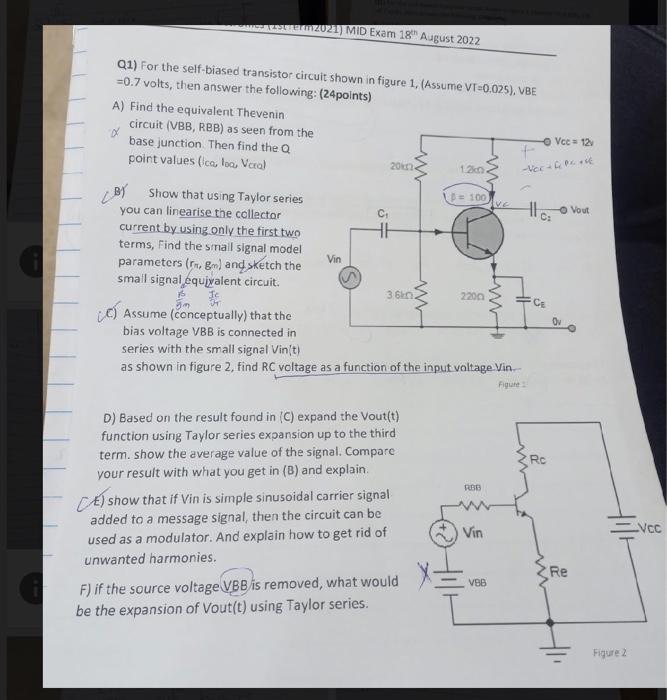 erm2021) MID Exam 18th August 2022
Q1) For the self-biased transistor circuit shown in figure 1, (Assume VT=0.025), VBE
=0.7 volts, then answer the following: (24points)
A) Find the equivalent Thevenin
circuit (VBB, RBB) as seen from the
base junction. Then find the Q
point values (Icq, Ibq, Vceq)
B) Show that using Taylor series
you can linearise the collector
current by using only the first two
terms, Find the small signal model
parameters (rπ, gm) and sketch the
small signal equivalent circuit.
β Ic
gm VT
C) Assume (conceptually) that the
bias voltage VBB is connected in
series with the small signal Vin(t)
as shown in figure 2, find RC voltage as a function of the input voltage Vin.
Vcc = 12v
20kΩ
1.2kΩ
β = 100
Vc
C1
C2
Vout
Vin
3.6kΩ
220Ω
CE
0v
Figure 1
D) Based on the result found in (C) expand the Vout(t)
function using Taylor series expansion up to the third
term. show the average value of the signal. Compare
your result with what you get in (B) and explain.
E) show that if Vin is simple sinusoidal carrier signal
added to a message signal, then the circuit can be
used as a modulator. And explain how to get rid of
unwanted harmonies.
F) if the source voltage VBB is removed, what would
be the expansion of Vout(t) using Taylor series.
Rc
RBB
Vin
VCC
VBB
Re
Figure 2